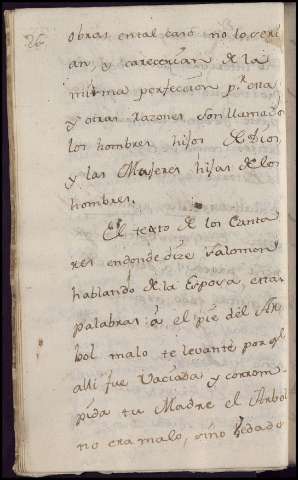 26
obras en tal caso no lo seri
an, y carecerian de la
misma perfeccion pr. esta
y otras razones son llamados
los hombres hijos de Dios
y las Mujeres hijas de los
hombres.
El texto de los Canta
res en donde dize Salomon
hablando de la Esposa, estas
palabras: à el pie del Ar
bol malo te levanté por ql.
alli fue Vaciada y corrom-
pida tu Madre el Arbol
no era malo, sino